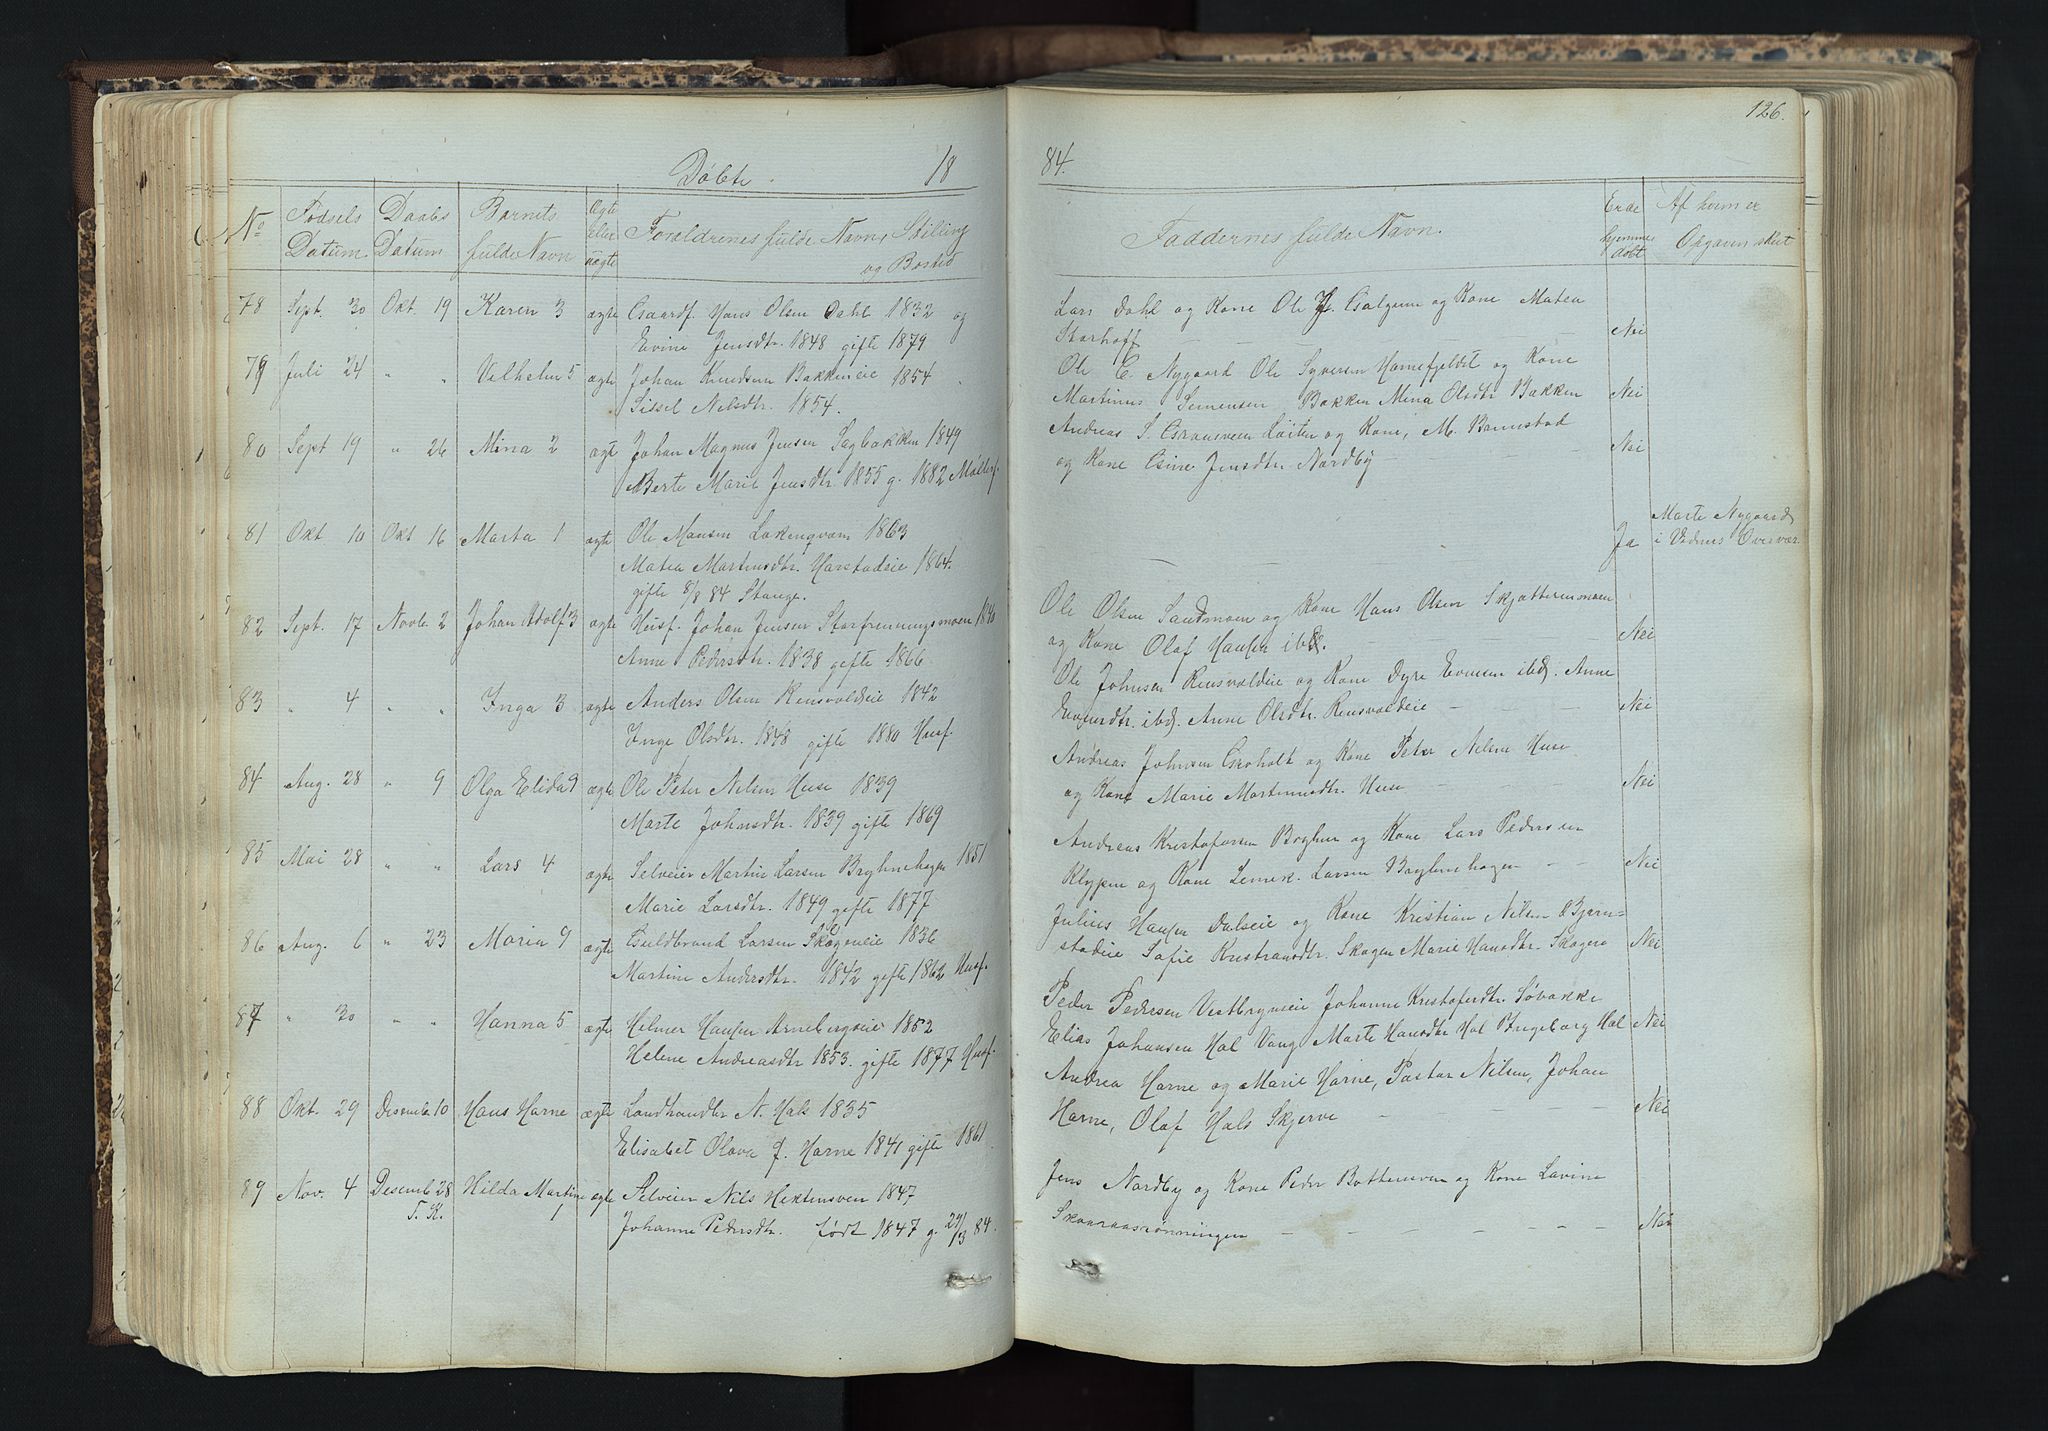 126.
Döbte 18 84.
No Fødsels Datum Daabs Datum Barnets fulde Navn Ægte eller uægte Forældrenes fulde Navn, Stilling og Bosted
Faddernes fulde Navn. Er de hjemmedöbt Af hvem er Opgaven sket
78 Sept. 30 Okt. 19 Karen 3 ægte Gaardf. Hans Olsen Dahl 1832 og
Evine Jensdtr. 1848 gifte 1879
Lars Dahl og Kone Ole og Kone Matea
Storhoff Nei
79 Juli 24 " " Vilhelm 5 ægte Johan Knudsen Bakkeneie 1854
Sissel Nilsdtr. 1854.
Ole E. Nygaard Ole Syversen Hornefjeldet og Kone
Martinus Simensen Bakken Mina Olsdtr Bakken Nei
80 Sept 19 " 26 Mina 2 ægte Johan Magnus Jensen Sagbakken 1849
Berte Marie Jensdtr. 1855 g. 1882 Møllerf.
Andreas S. Løiten og Kone, M.
og Kone Jensdtr. Nordby Nei
81 Okt 10 Okt 16 Marta 1 ægte Ole Hansen 1863
Matea Martinsdtr. Harstadeie 1864.
gifte 8/8 84 Stange.
Ja Marte Nygaard
i
82 Sept. 17 Novb. 2 Johan Adolf 3 ægte Husf. Johan Jensen 1840
Anne Pedersdtr. 1838 gifte 1866
Ole Olsen Sandmoen og Kone Hans Olsen
og Kone Olaf Hansen ibd. Nei
83 " 4 " " Inga 3 ægte Anders Olsen Rensvoldeie 1842
Inge Olsdtr. 1848 gifte 1880 Husf.
Ole Johnsen Rensvoldeie og Kone Dyre Evensen ibd. Anne
Evensdtr. ibd. Anne Olsdtr. Rensvoldeie Nei
84 Aug. 28 " 9 Olga Elida 9 ægte Ole Peter Nilsen Huse 1839
Marte Johnsdtr. 1839 gifte 1869
Andreas Johnsen Groholt og Kone Peter Nilsen Huse
og Kone Marie Martinusdtr. Huse Nei
85 Mai 28 " " Lars 4 ægte Selveier Martin Larsen Bryhnehagen 1851
Marie Larsdtr. 1849 gifte 1877
Andreas Kristofersen Bryhn og Kone Lars Pedersen
Klypen og Kone Larsen Bryhnehagen Nei
86 Aug. 6 " 23 Maria 9 ægte Guldbrand Larsen Skogeneie 1836
Martine Andersdtr. 1842 gifte 1862 Husf.
Julius Hansen Dalseie og Kone Kristian Nilsen Bjørn=
stadeie Sofie Kristiansdtr. Skogen Marie Hansdtr. Skogen Nei
87 " 30 " " Hanna 5 ægte Helmer Hansen Arnebergseie 1852
Helene Andreasdtr 1853. gifte 1877 Husf.
Peder Pedersen Johanne Kristofersdtr. Søbakke
Elias Johansen Hol Vang Marte Hansdtr Hol Ingeborg Hol Nei
88 Okt. 29 Desemb. 10 Hans Horne ægte Landhandler N. Hals 1835
Elisabet Olava f. Horne 1841 gifte 1861
Andrea Horne og Marie Horne, Pastor Nilsen, Johan
Horne, Olaf Hals Skjerve Nei
89 Nov. 4 Desemb 28 Hilda Martine 1 ægte Selveier Nils Hektensven 1847
T. K. Johanne Pedersdtr. født 1847 g. 29/3 84.
Jens Nordby og Kone Peder Bottensven og Kone Lavine
Skaaraasrønningen Nei